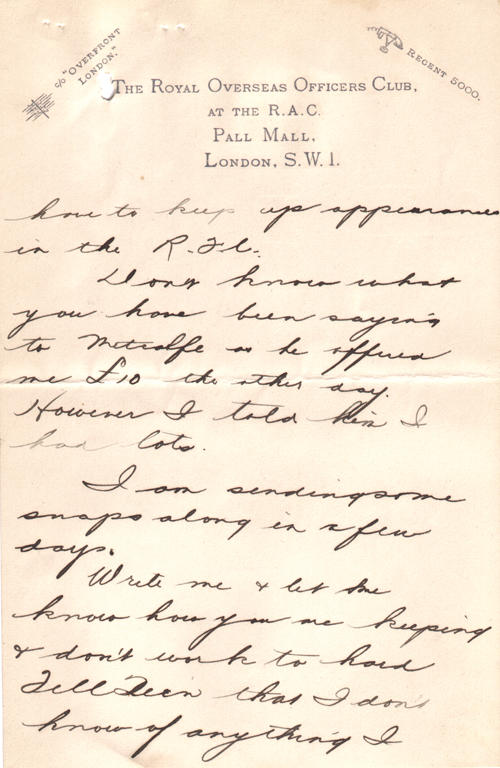 c/o "OVERFRONT
LONDON."
REGENT 5000.
THE ROYAL OVERSEAS OFFICERS CLUB,
AT THE R.A.C.
PALL MALL,
LONDON, S.W.1.
have to keep up appearances
in the R.F.C.
Don't know what
you have been saying
to Metcalfe as he offered
me £10 the other day.
However I told him I
had lots.
I am sending some
snaps along in a few
days.
Write me & let me
know how you are keeping
& don't work to hard
Tell that I don't
know of anything I